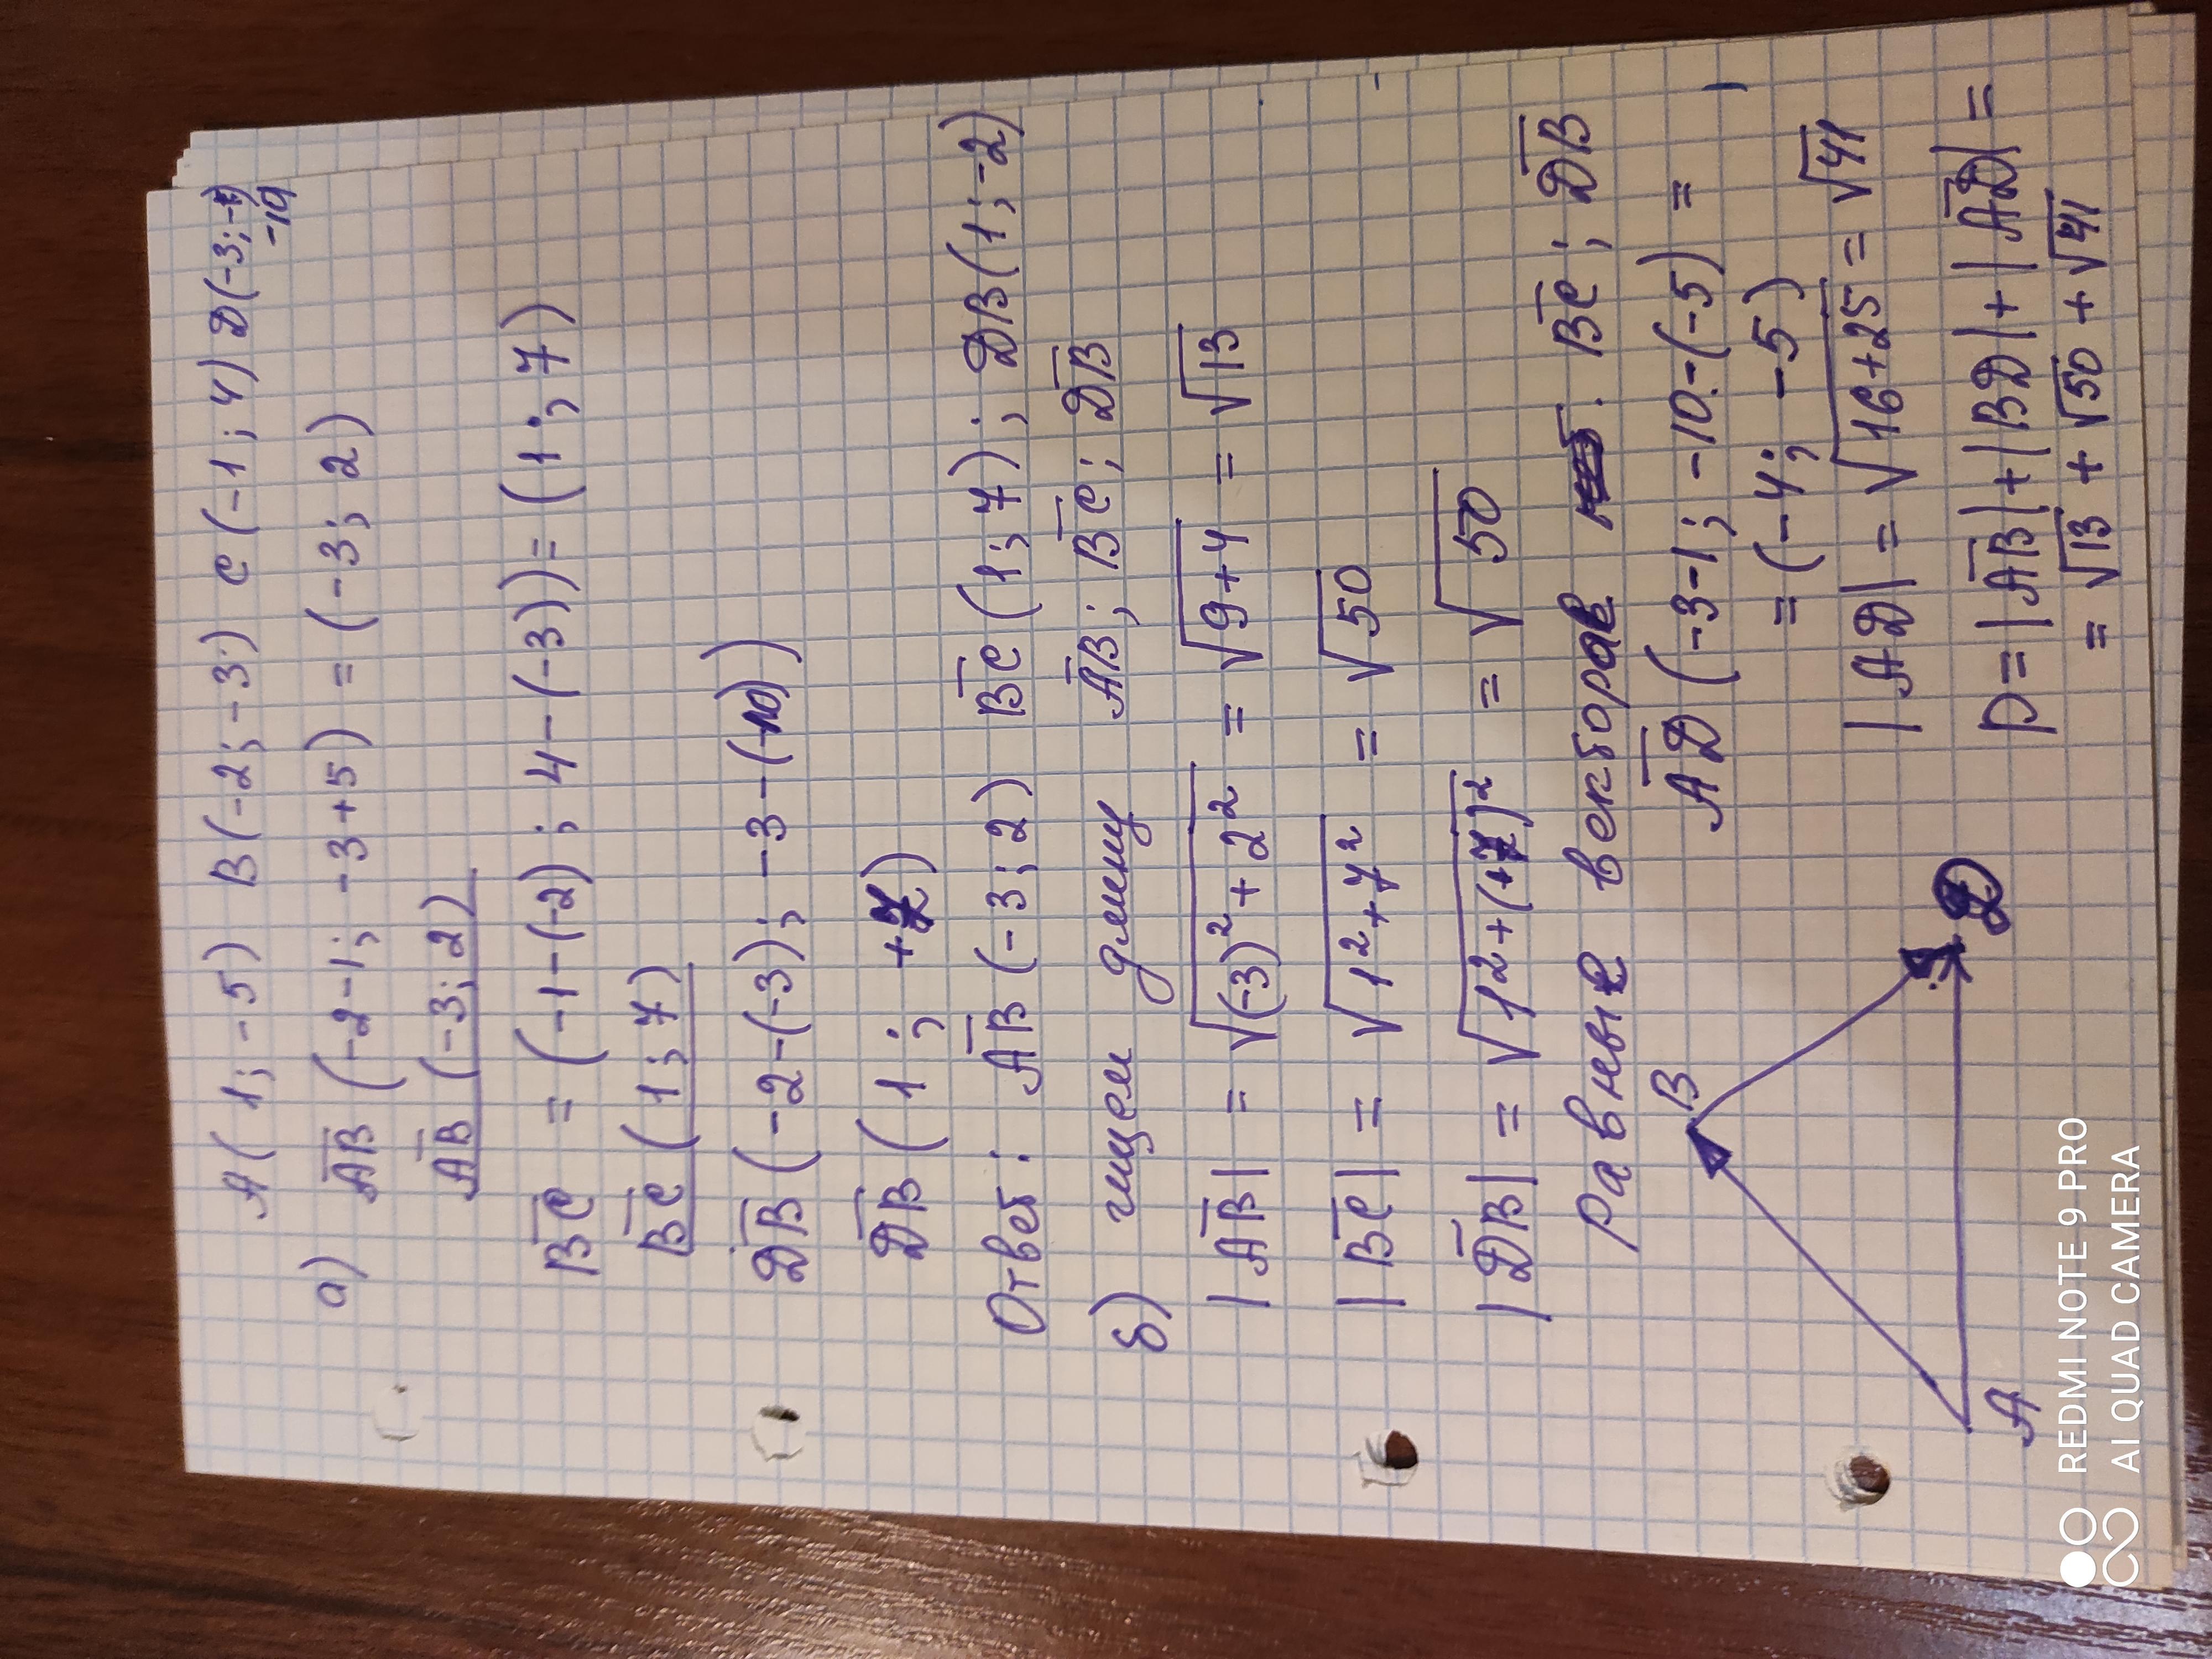 A(1;-5) B(-2;-3) C(-1;4) D(-3;
-10
а) AB (-2-1; -3+5) = (-3; 2)
AB (-3; 2)
BC = (-1-(-2); 4-(-3)) = (1; 7)
BC (1; 7)
DB (-2-(-3); -3-(-10))
DB (1; +7)
Ответ: AB (-3; 2) BC (1; 7); DB (1; -2)
б) ищем длину AB; BC; DB
|AB| = √(-3)²+2² = √9+4 = √13
|BC| = √1²+7² = √50
|DB| = √1²+(+7)² = √50
Равные вектора : BC; DB
AD (-3-1; -10-(-5) =
= (-4; -5)
|AD| = √16+25 = √41
P = |AB|+|BD|+|AD| =
= √13 + √50 + √41
B
A
D
REDMI NOTE 9 PRO
AI QUAD CAMERA